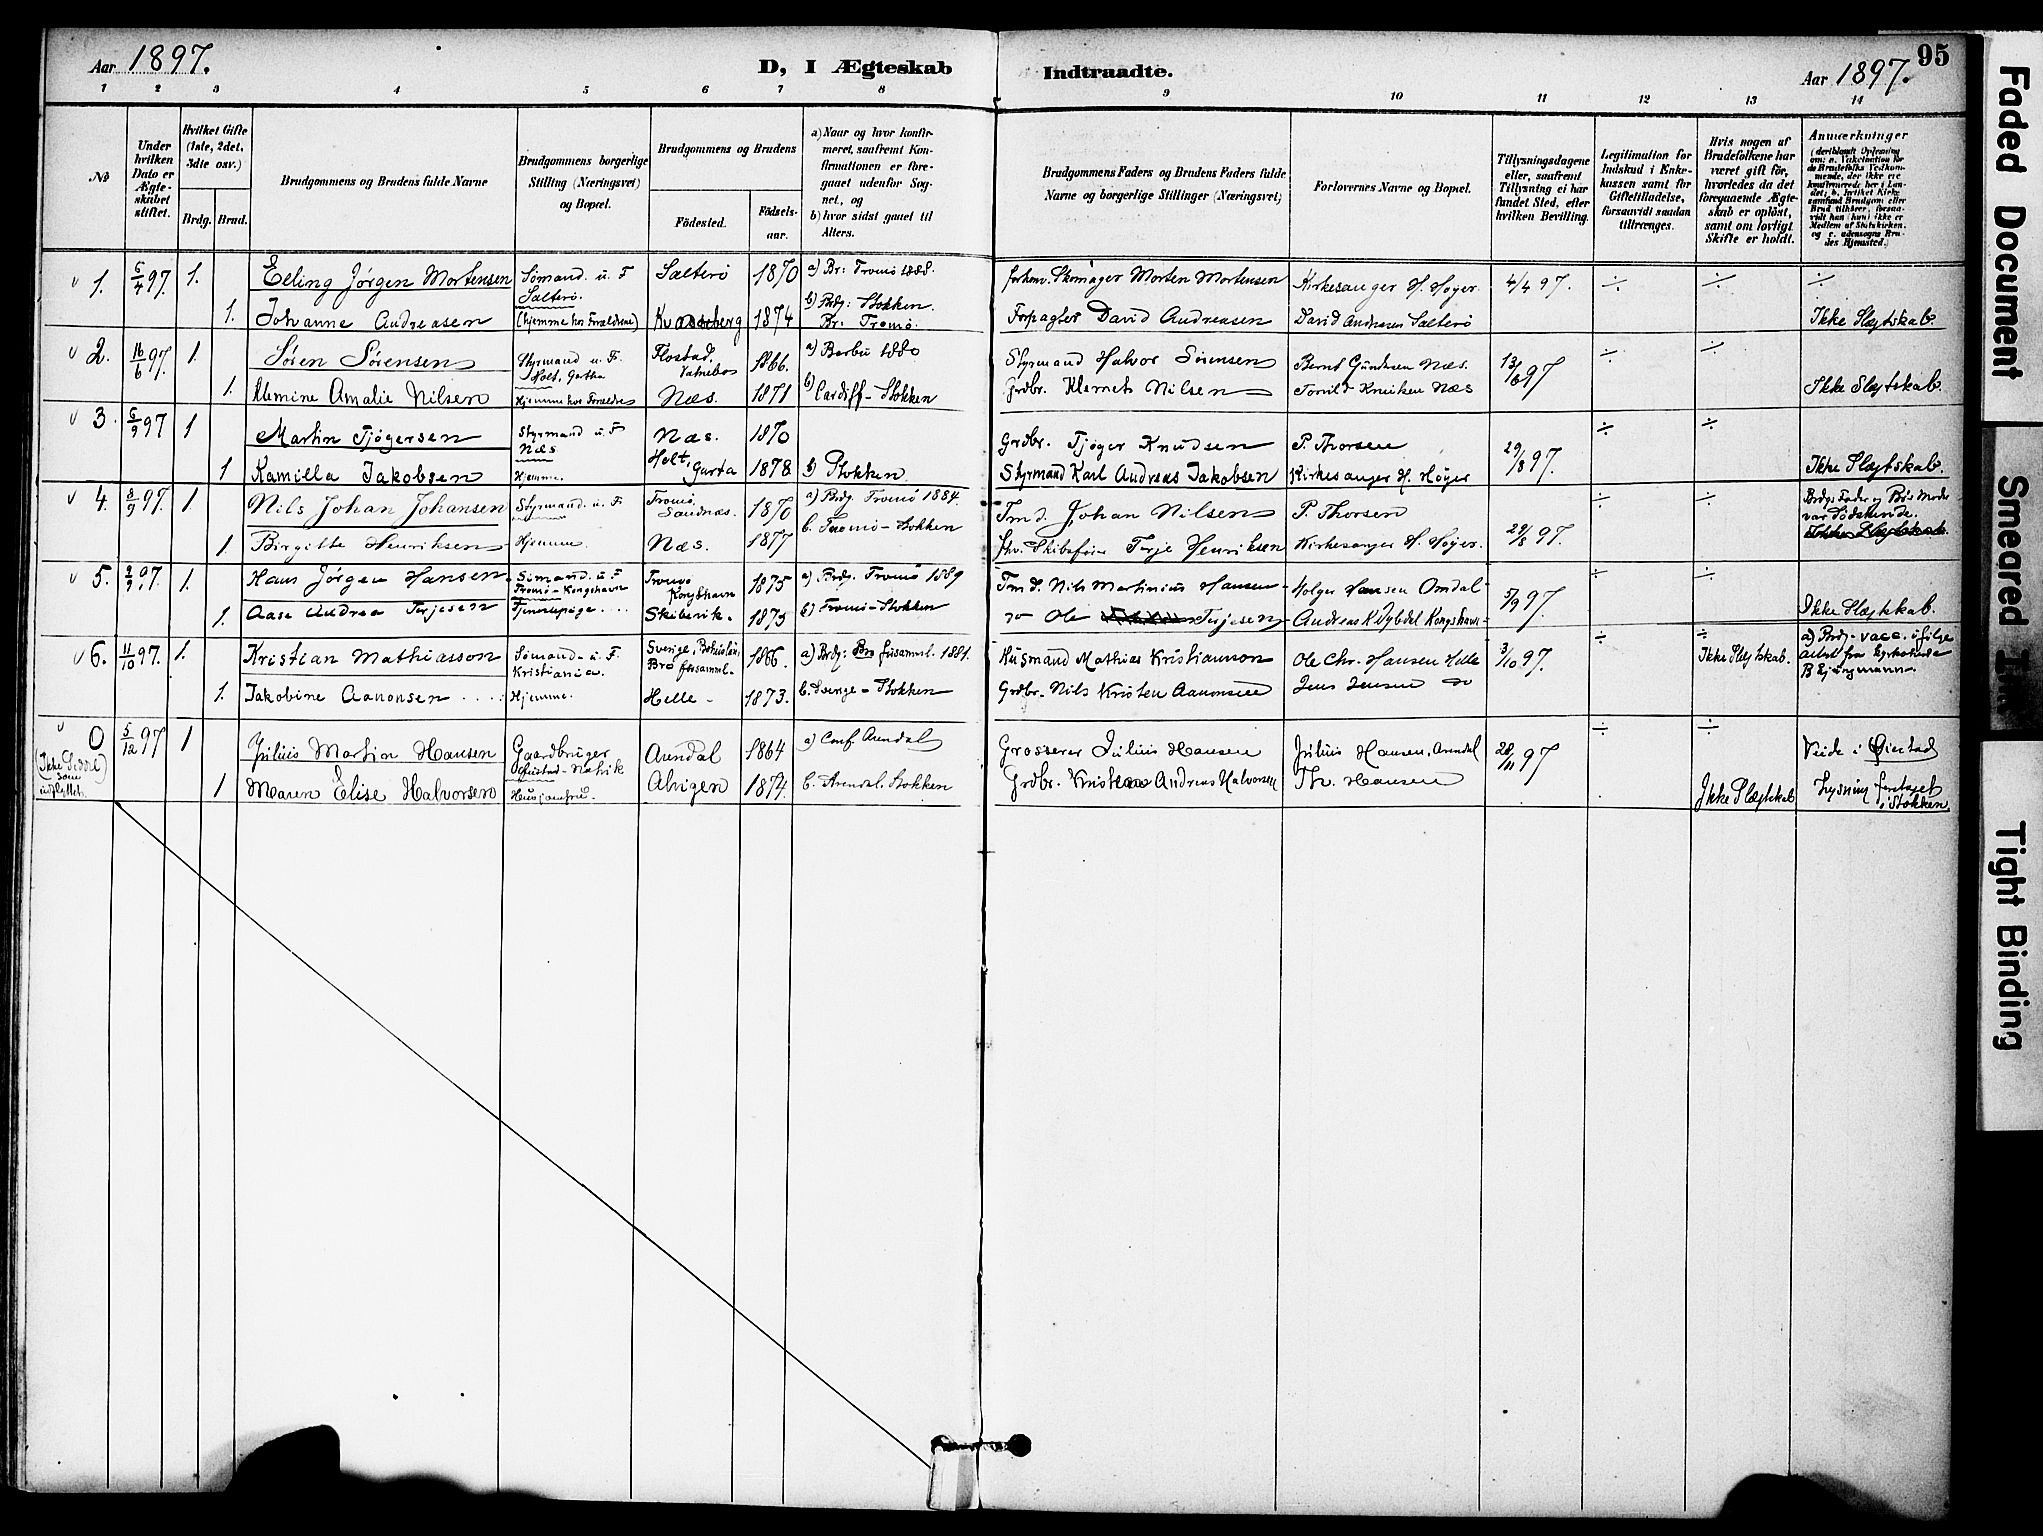 Aar 1897. D, I Ægteskab Indtraadte. Aar 1897. 95
1 2 3 4 5 6 7 8 9 10 11 12 13 14
No
Under hvilken Dato er Ægteskabet stiftet.
Hvilket Gifte (1ste, 2det, 3die osv.)
Brdg. Brud.
Brudgommens og Brudens fulde Navne
Brudgommens borgerlige Stilling (Næringsvei) og Bopæl.
Brudgommens og Brudens
Fødested. Fødsels-aar.
a) Naar og hvor konfirmeret, saafremt Konfirmationen er foregaaet udenfor Sognet, og
b) hvor sidst gaaet til Alters.
Brudgommens Faders og Brudens Faders fulde Navne og borgerlige Stillinger (Næringsvei)
Forlovernes Navne og Bopæl.
Tillysningsdagene eller, saafremt Tillysning ei har fundet Sted, efter hvilken Bevilling.
Legitimation for Indskud i Enkekassen samt for Giftetilladelse, forsaavidt saadan tiltrænges.
Hvis nogen af Brudefolkene har været gift før, hvorledes da det foregaaende Ægteskab er opløst, samt om lovligt Skifte er holdt.
Anmærkninger
1. 6/4 97. 1. Elling Jørgen Mortensen Sømand u. F Salterø Salterø 1870 a) Br: Tromø 1888. forhenv. Skomager Morten Mortensen Kirkesanger H. Høyer 4/4 97. ÷ ÷ ÷
1. Johanne Andreasen (hjemme hos Forældrene) 1874 b) Brdg: Stokken. Br: Tromø. Forpagter David Andreasen David Andreasen Salterø Ikke Slægtskab.
2. 16/6 97. 1. Søren Sørensen Styrmand u. F. Holt, Gartha Flostad, Vatnebo 1866. a) Barbu 1880 Styrmand Halvor Sørensen Bernt Gundersen Næs. 13/6 97 ÷ ÷
1. Amalie Nilsen Hjemme hos Forældre Næs. 1871 b) Cardiff - Stokken Grdbr. Nilsen Næs Ikke Slægtskab.
3. 6/9 97 1 Martin Tjøgersen Styrmand u. F Næs Næs. 1870 Grdbr. Tjøger Knudsen P. Thorsen 29/8 97. ÷ ÷
1 Kamilla Jakobsen Hjemme. Holt, Garta 1878 b) Stokken Styrmand Karl Andreas Jakobsen Kirkesanger H. Høyer Ikke Slægtskab.
4. 8/9 97. 1. Nils Johan Johansen Styrmand. u. F Tromø, Sandnæs. 1870 a) Brdg. Tromø 1884. Tmd. Johan Nilsen P. Thorsen 29/8 97. ÷ ÷ Brdgs Fader og Brs Moder var Sødskende.
1. Birgitte Henriksen Hjemme Næs. 1877 b. Tromø - Stokken Terje Henriksen Kirkesanger H. Høyer. Ikke Slægtskab.
5. 9/9 97. 1. Hans Jørgen Hansen Sømand. u. F Tromø - Kongshavn Tromø Kongshavn 1875 a) Brdg. Tromø 1889 Tmd. Nils Martinius Hansen Holger Hansen Omdal 5/9 97. ÷ ÷
1. Aase Andrea Terjesen Tjenestepige Skibevik. 1875 b) Tromø - Stokken do Ole Terjesen Andreas K. Kongshavn Ikke Slægtskab.
6. 11/10 97. 1. Kristian Mathiasson Sømand - u. F. Kristiania. Sverige, Bohuslän, Bro församml. 1866. a) Brdg: Bro församml. 1881. Husmand Mathias Kristianson Ole Chr. Hansen Helle 3/10 97. ÷ ÷ Ikke Slægtskab. a) Brdg. vacc. ifølge attest fra
1. Jakobine Aanonsen Hjemme. Helle 1873. b. Sverige - Stokken Grdbr. Nils Kristen Aanonsen Jens Jensen do
0 (Ikke Seddel som udflyttet. 5/12 97 1 Julius Martin Hansen Gaardbruger Øiestad - Natvik Arendal 1864 a) Conf. Arendal Grosserer Julius Hansen Julius Hansen, Arendal 28/11 97 ÷ ÷ Viede i Øiestad
1 Maren Elise Halvorsen Husjomfru. Alvigen 1874. b. Arendal. Stokken Grdbr. Kristen Andreas Halvorsen Th. Hansen Ikke Slægtskab Lysning foretaget i Stokken.
Faded Document
Smeared Ink
Tight Binding